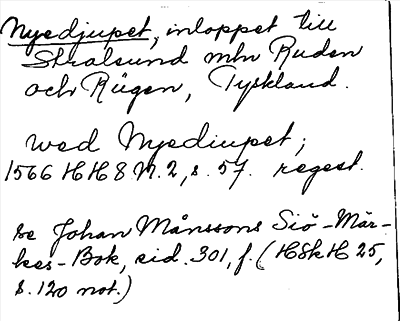 Nyedjupet, inloppet till
Stralsund mln Ruden
och Rügen, Tyskland.
wed Nyediupet;
1566 HH 8 N. 2, s. 57. regest.
se Johan Månssons Siö-Mär-
kes-Bok, sid. 301, f. (HSkH 25,
s. 120 not.)